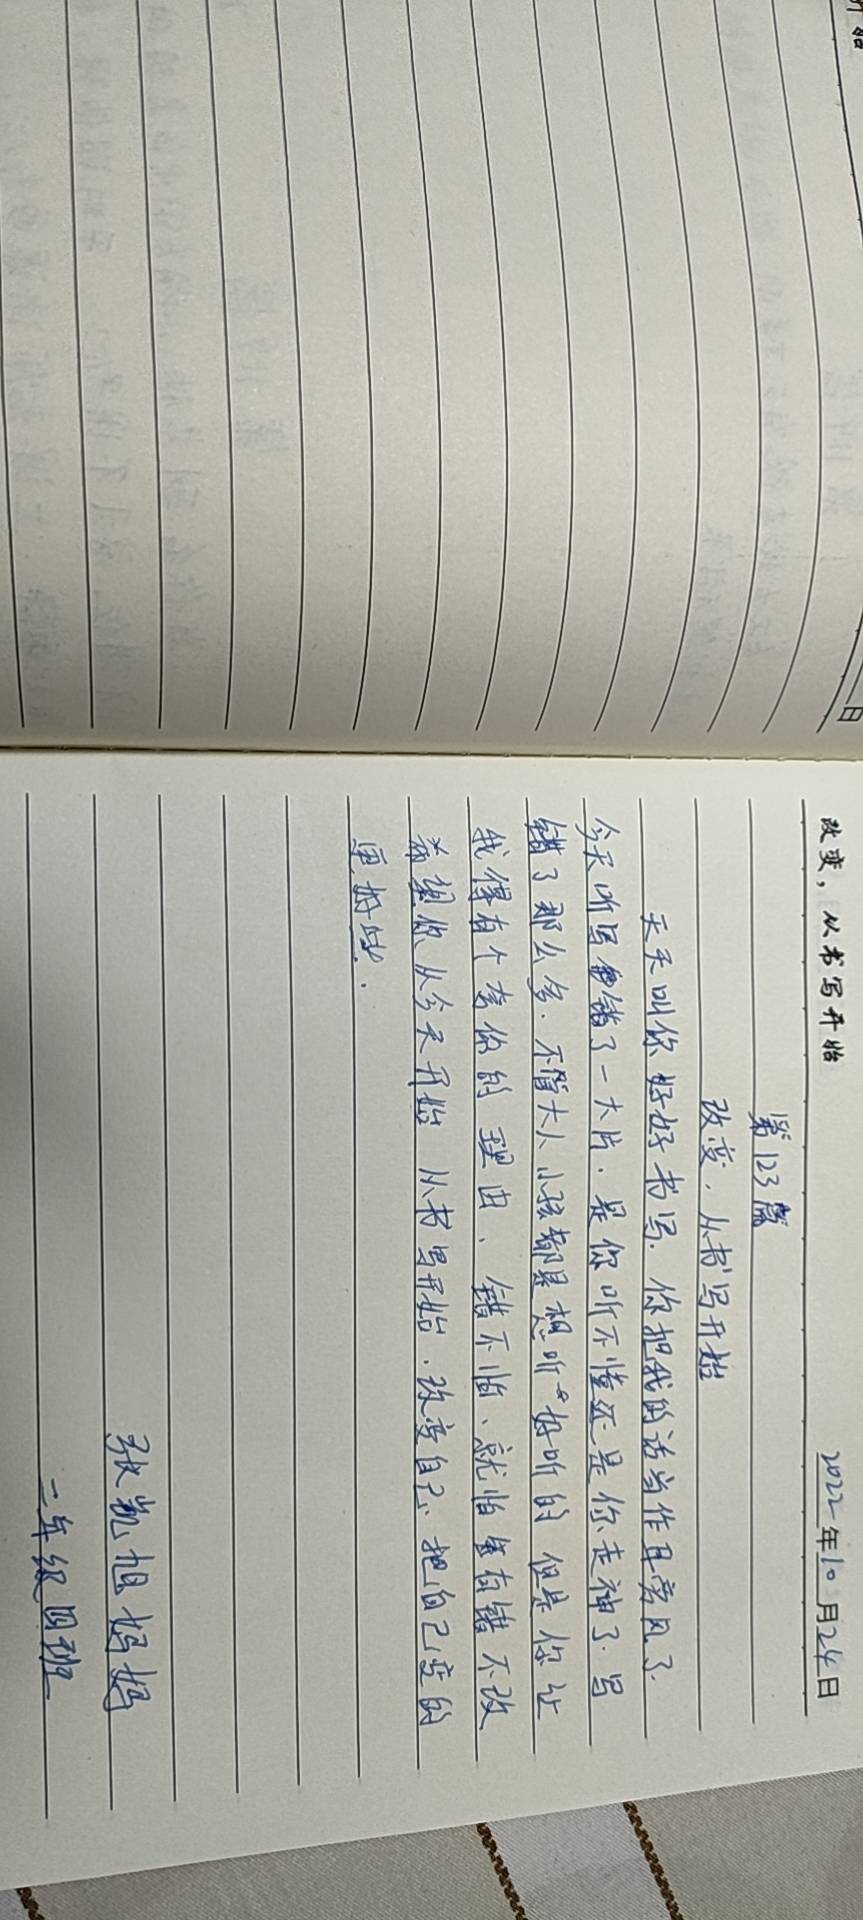 改变，从书写开始
2022年10月24日
第123篇
改变.从书写开始
天天叫你好好书写.你把我的话当作耳旁风了.
今天听写错了一大片.是你听不懂还是你走神了.写
错了那么多.不管大人小孩都是想听好听的但是你让
我得有个夸你的理由、错不怕、就怕有错不改
希望你从今天开始从书写开始.改变自己、把自己变的
更好哒.
张凯旭妈妈
二年级四班
开始
日